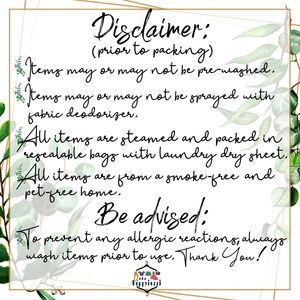 Disclaimer:
(prior to packing)
Items may or may not be pre-washed.
Items may or may not be sprayed with
fabric deodoriser.
All items are steamed and packed in
resealable bags with laundry dry sheet.
All items are from a smoke-free and
pet-free home.
Be advised:
To prevent any allergic reactions, always
wash items prior to use. Thank You!